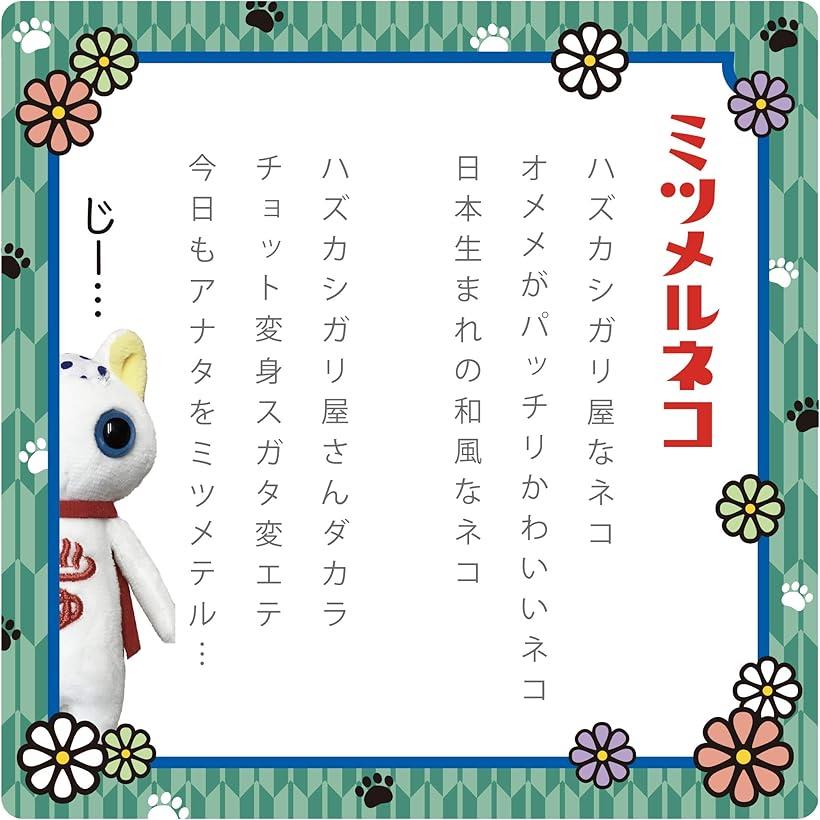 ミツメルネコ
ハズカシガリ屋なネコ
オメメがパッチリかわいいネコ
日本生まれの和風なネコ
ハズカシガリ屋さんダカラ
チョット変身スガタ変エテ
今日もアナタをミツメテル…
じー…